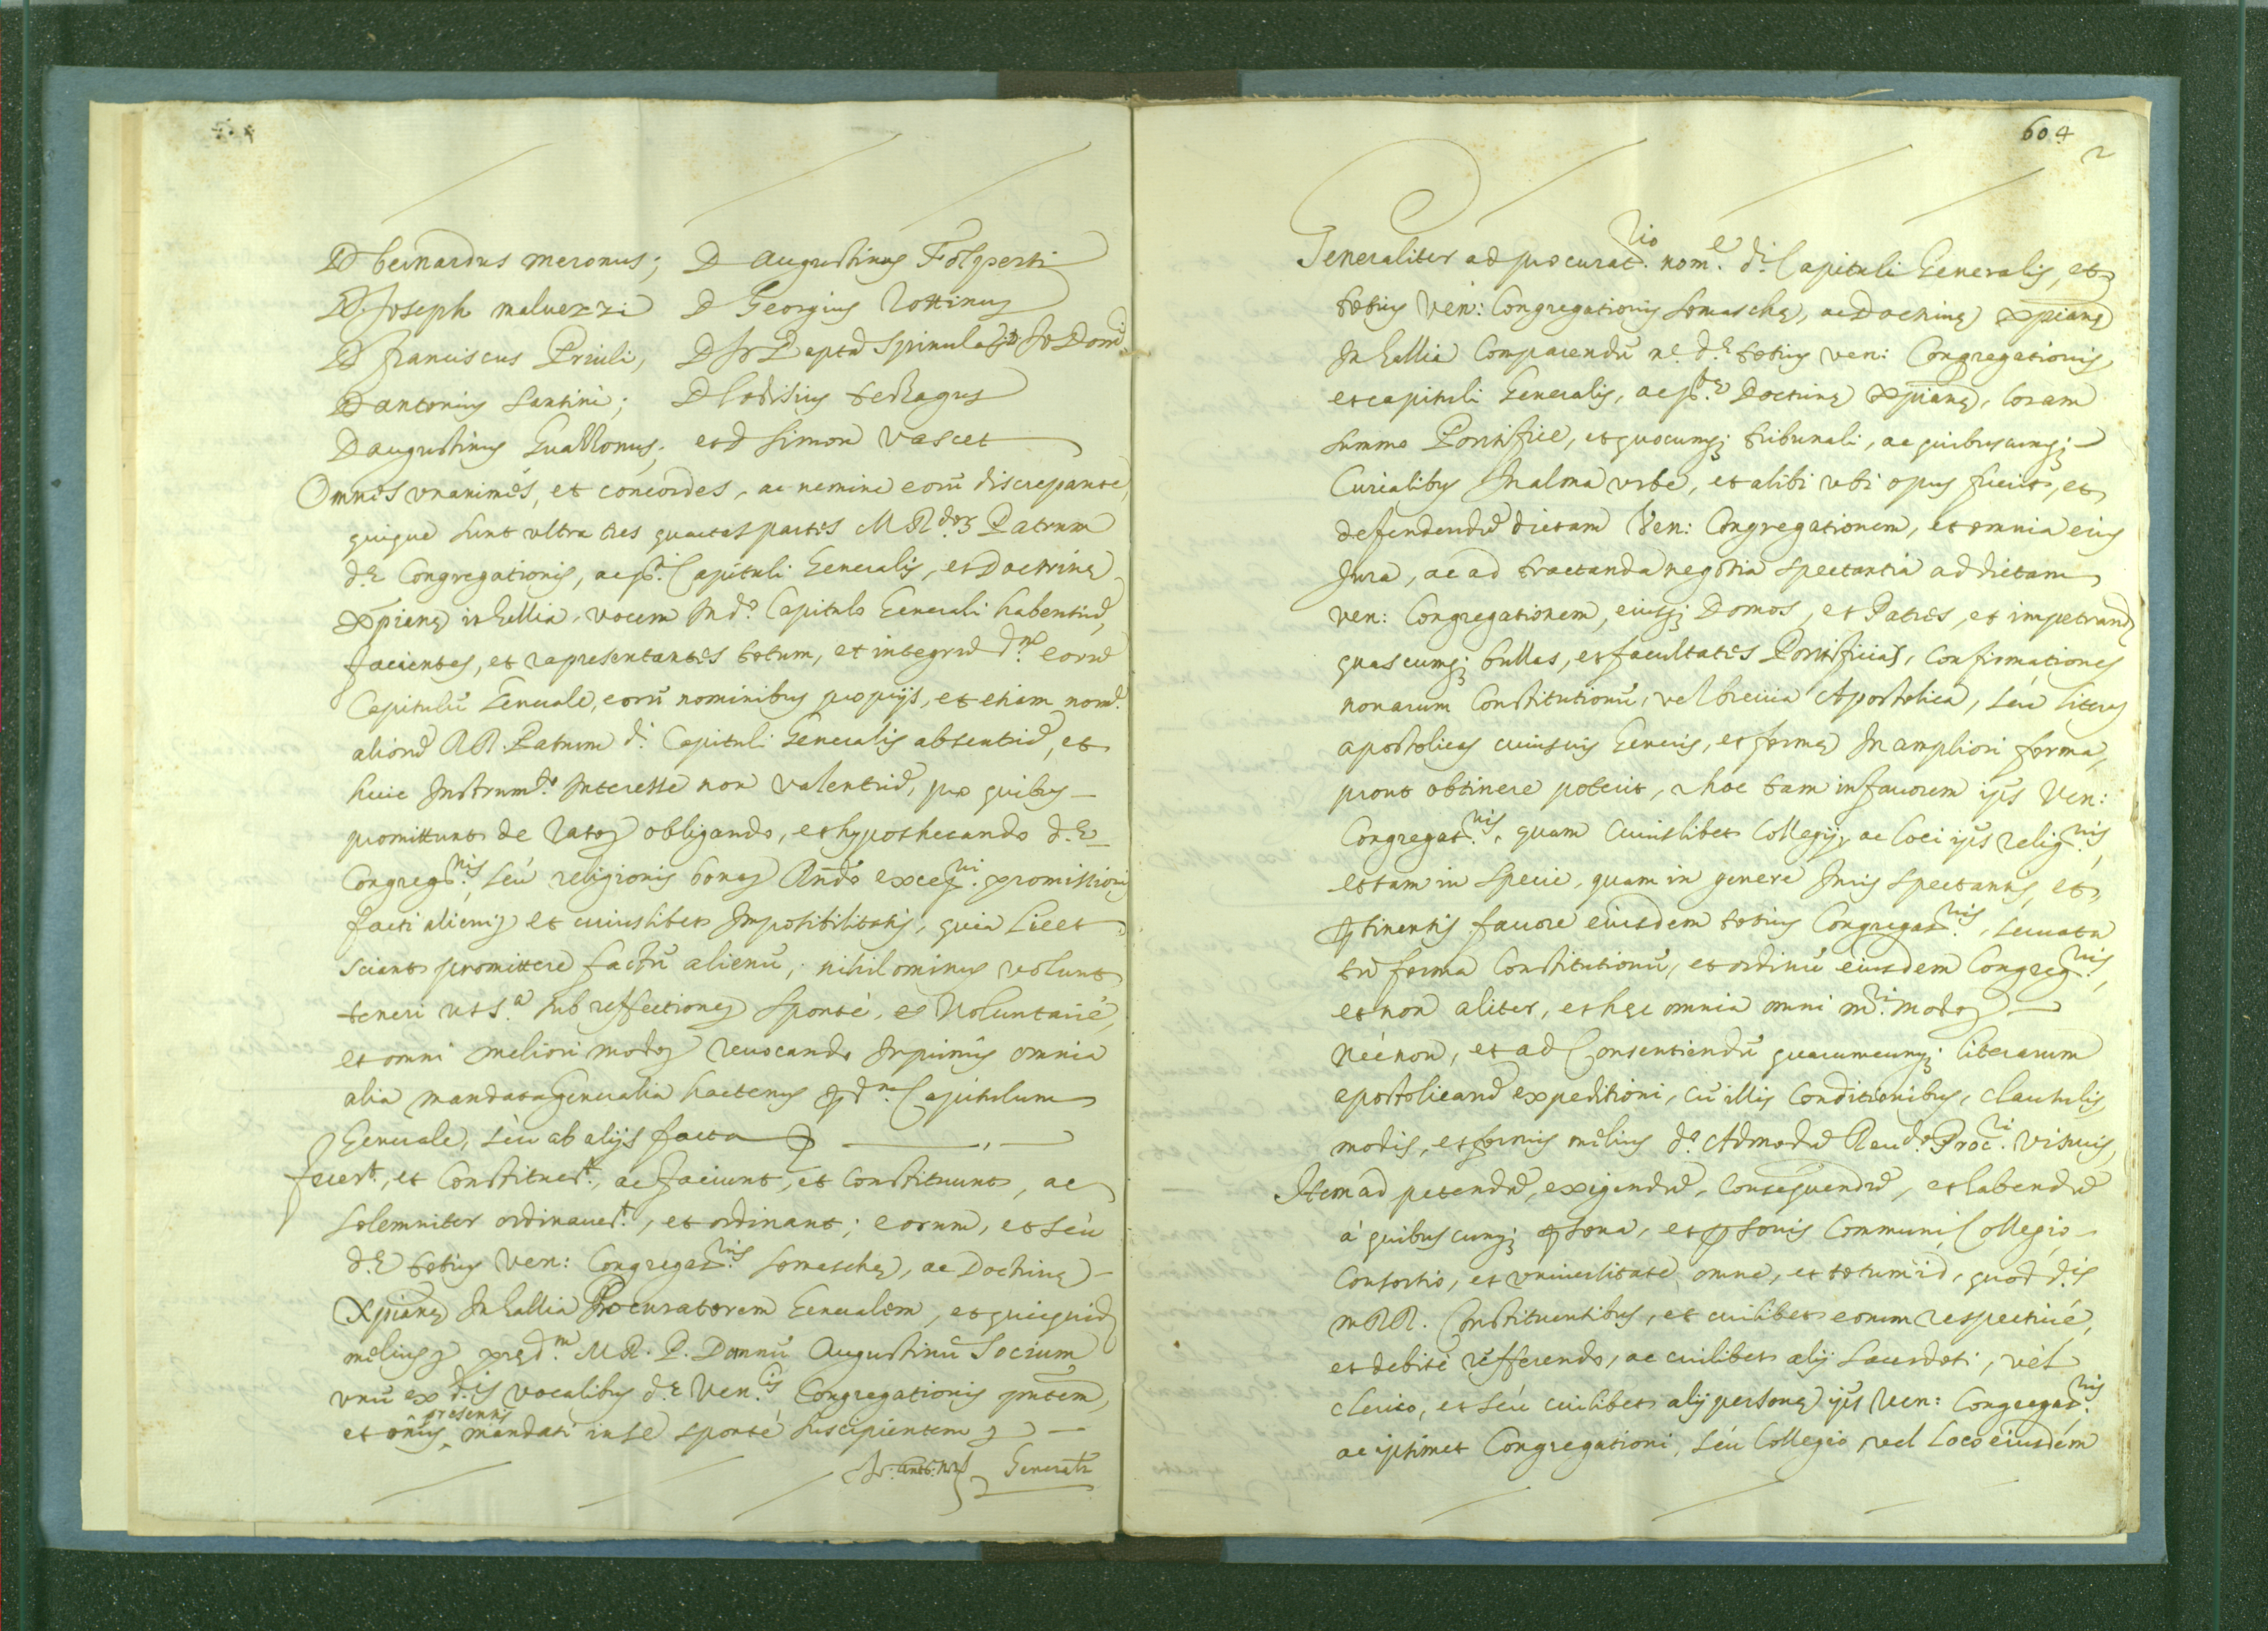 D Bernardus Meronus; D Augustinus Folperti
D. Joseph Malvezzi D Georgius Rottinus
D Franciscus Priuli, D Jo Bapta Spinula Jo Domi
D Antonius Santini; D Lodisius
D Augustinus Guallonus; et D Simon Vascet
Omnes unanimes, et concordes, ac nemine eorũ discrepante,
quique sunt ultra tres quartas partes M R.dor Patrum
d.æ Congregationis, ac p.ti Capituli Generalis, et Doctrinę
Xpianę in Gallia, vocem In d.º Capitulo Generali habentiũ,
facientes, et rapresentantes totum, et integrũ d.m eorũ
Capitulũ Generale, eorũ nominibus proprijs, et etiam nom.e
aliorũ RR. Patrum d.i Capituli Generalis absentiũ, et
huic Instrum.to Interesse non valentiũ, pro quibus
promittunt de rato obligando, et hypothecando d.æ
Congreg.nis, seù religionis bona promissionis
facti alieni et cuiuslibet Impossibilitatis, quia licet
sciant promittere factũ alienũ, nihilominus volunt
teneri ut s.a sub reffectione sponté, et Voluntarié,
et omni meliori modo revocando Inprimis omnia
alia mandata Generalia hactenus per d.m Capitulum
Generale, seù ab alijs facta
fecer.t, et Constituer.t, ac faciunt, et Constituunt, ac
solemniter ordinauer.t, et ordinant; eorum, et seù
d.æ totius Ven: Congregat.nis Somaschę, ac Doctrinę
Xpianę In Gallia Procuratorem Generalem, et quicquid
melius pręd.m M.R.P. Donnũ Augustinũ Socium
unũ ex d.is vocalibus d.æ Ven.lis Congregationis pñtem,
et onus presentis mandati in se sponté suscipientem
Generalr
604
2
Generaliter ad procurat.rio nom.e d.i Capituli Generalis, et
totius Ven: Congregationis Somaschę, ac Doctrinę Xpianę
In Gallia Comparendũ n.e d.æ totius ven: Congregationis,
et capituli Generalis, ac p.tæ Doctrinę Xpianę, Coram
Summo Pontifice, et quocumq; tribunali, ac quibuscumq;
Curialibus In alma urbe, et alibi ubi opus fuerit, et
defendendũ dictam Ven: Congregationem, et omnia eius
Jura, ac ad tractanda negotia spectantia ad dictam
ven: Congregationem, eiusq; Domos, et Patres, et impetrand
quascumq; bullas, et facultates Pontificias, confirmationes
nonarum Constitutionũ, vel brevia Apostolica, seù literas
apostolicas cuiusuis Generis, et formę In ampliori forma,
prout obtinere poterit, et hoc tam in favorem ijs Ven:
Congregat.nis, quam Cuiuslibet Collegij, ac loci ijs relig.nis,
et tam in specie, quam in genere Juris spectantis, et
pertinentis favore eiusdem totius Congregat.nis, servata
tñ forma Constitutionũ, et ordinũ eiusdem Congreg.nis,
et non aliter, et hęc omnia omni m.ri modo
Nécnon, et ad Consentiendũ quarumcunq; literarum
apostolicarũ expeditioni, cũ illis Conditionibus, clausulis,
modis, et formis melius d.º Admodũ Reu.do Proc.ri visuis,
Item ad petendũ, exigendũ, Consequendũ, et habendũ
à quibuscunq; persona, et personis Communi, Collegio
Consortio, et universitate omne, et totum id, quod d.is
m RR. Constituentibus, et cuilibet eorum respectiué,
et debité refferendo, ac cuilibet alij sacerdoti, vel
clerico, et seù cuilibet alij personę ijs Ven: Congregat.nis
ac ipsimet Congregationi, seù Collegio, vel Loco eiusdem